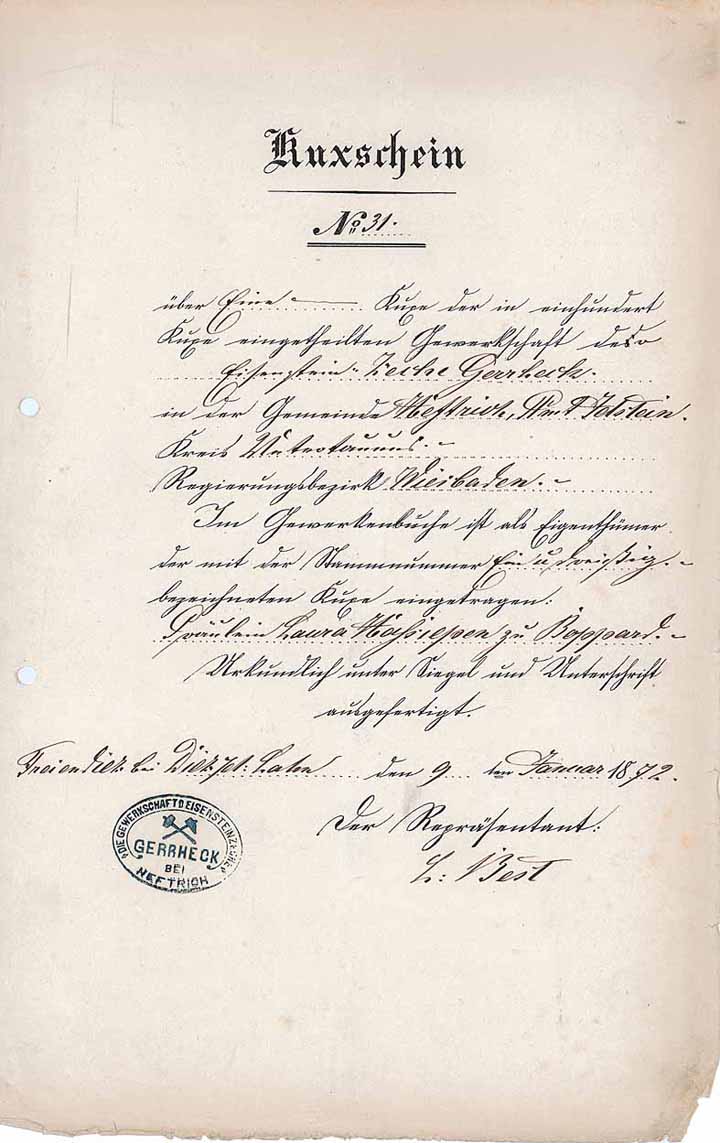 Kuxschein
No 31.
über Eine Kuxe der in einhundert
Kuxe eingetheilten Gewerkschaft des
Eisenstein- Zeche Gerrheck.
in der Gemeinde Heftrich, Amt Idstein.
Kreis Untertaunus.
Regierungsbezirk Wiesbaden.
Im Gewerkenbuche ist als Eigenthümer
der mit der Stammnummer Ein u. dreißig.
bezeichneten Kuxe eingetragen:
Fräulein Laura zu Boppard.
Urkundlich unter Siegel und Unterschrift
ausgefertigt.
Freiendiez bei Diez den 9 ten Januar 1872.
DIE GEWERKSCHAFT D EISENSTEINZECHE
GERRHECK
BEI
HEFTRICH
Der Repräsentant:
Best